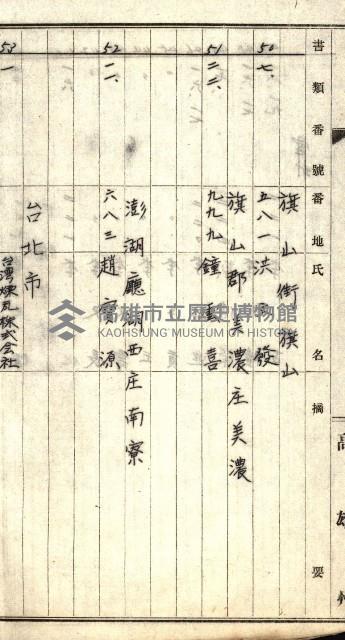 書類番號 番地 氏名 摘要
高雄州
旗山街旗山
50 七、
五八一 洪 發
旗山郡美濃庄美濃
51 二二、
九九九 鐘 喜
澎湖廳湖西庄南寮
52 一一、
六八三 趙 源
台北市
53 一
台灣煉瓦株式会社
高雄市立歷史博物館
KAOHSIUNG MUSEUM OF HISTORY